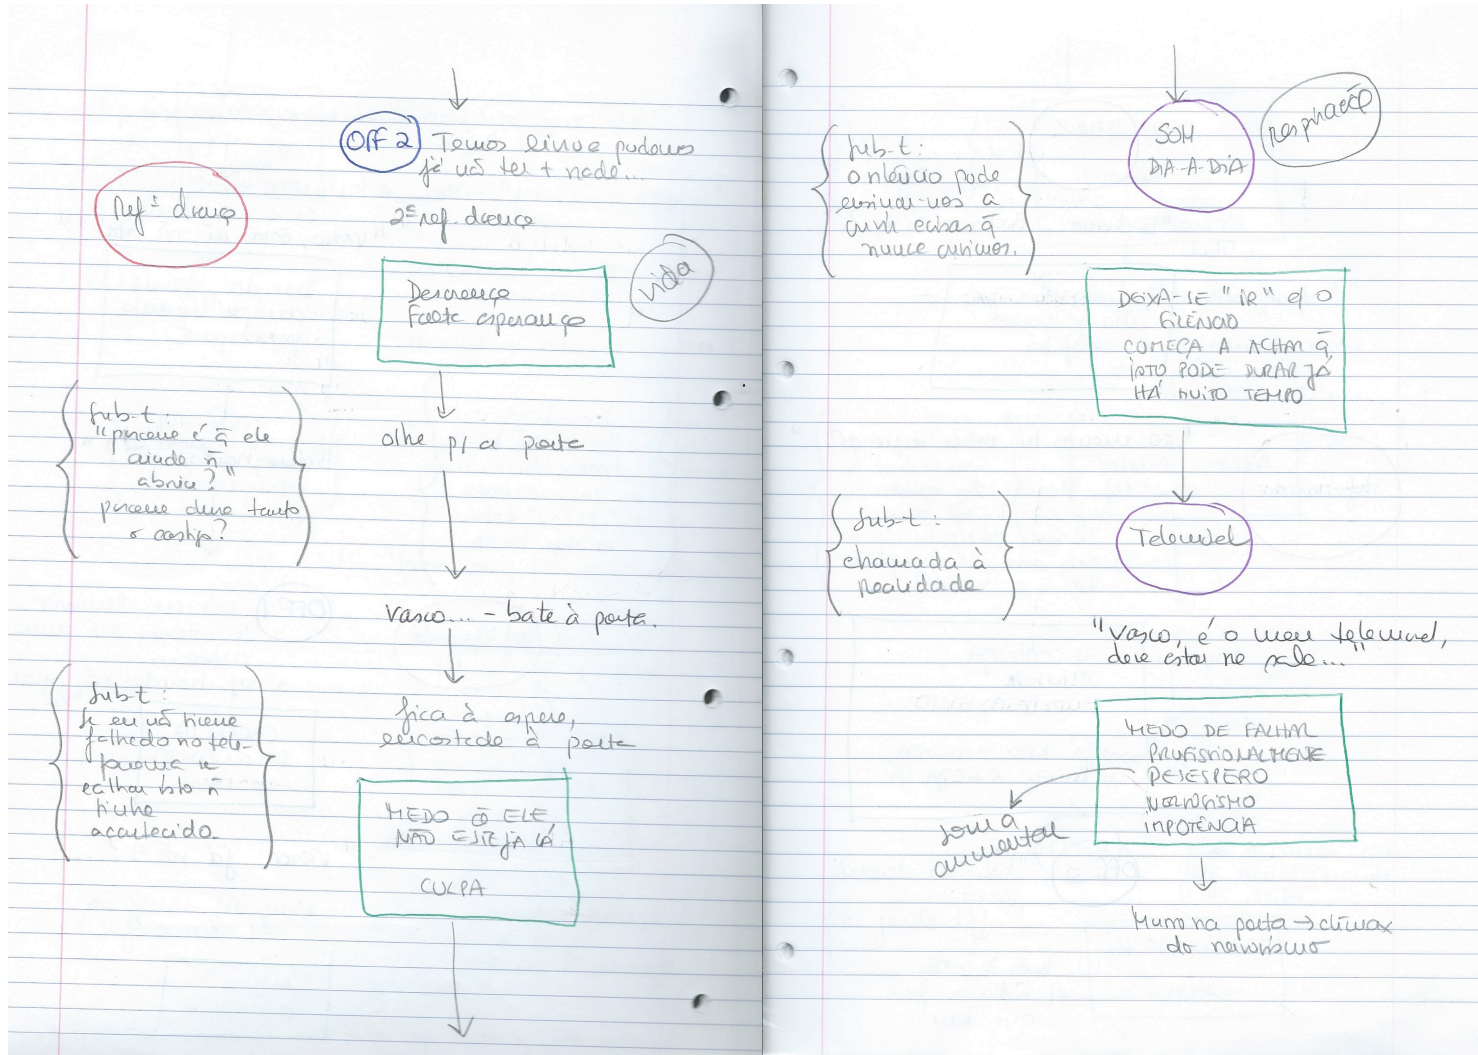 OFF 2 Temos
já não ter + nada...
Refª doença
2ª ref. doença
vida
Descrença
Falta esperança
Sub-t:
"porque é q̄ ele
ainda ñ
abriu?"
porque dura tanto
o castigo?
olha p/ a porta
Vasco... - bate à porta.
Sub-t:
se eu não tivesse
falhado no tele-
se
calhar isto ñ
tinha
acontecido.
fica à espera,
encostada à porta
MEDO Q̄ ELE
NÃO ESTEJA LÁ
CULPA
SOM
DIA-A-DIA
respiração
Sub-t:
o silêncio pode
ensinar-nos a
ouvir coisas q̄
nunca ouvimos.
DEIXA-SE "IR" c/ O
SILÊNCIO
COMEÇA A ACHAR Q̄
ISTO PODE DURAR JÁ
HÁ MUITO TEMPO
Sub-t:
chamada à
realidade
Telemóvel
"Vasco, é o meu telemóvel,
deve estar na sala..."
MEDO DE FALHAR
PROFISSIONALMENTE
DESESPERO
NERVOSISMO
IMPOTÊNCIA
som a
aumentar
Murro na porta → clímax
do nervosismo